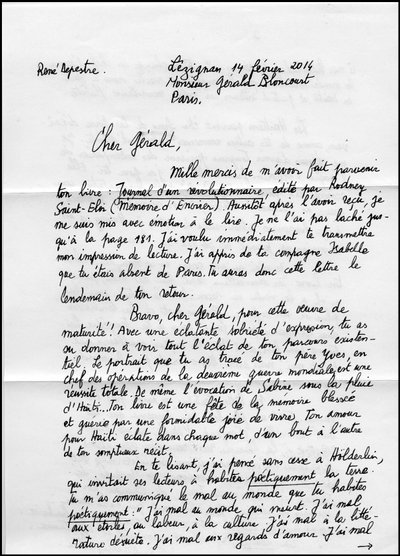 René Depestre.
Lézignan 14 février 2014
Monsieur Gérald Bloncourt
Paris.
Cher Gérald,
Mille mercis de m'avoir fait parvenir
ton livre : Journal d'un révolutionnaire édité par Rodney
Saint-Eloi (Mémoire d'Encrier) Aussitôt après l'avoir reçu, je
me suis mis avec émotion à le lire. Je ne l'ai pas laché jus-
qu'à la page 181. J'ai voulu immédiatement te transmettre
mon impression de lecture. J'ai appris de ta compagne Isabelle
que tu étais absent de Paris. Tu auras donc cette lettre le
lendemain de ton retour.
Bravo, cher Gérald, pour cette œuvre de
maturité ! Avec une éclatante sobriété d'expression, tu as
su donner à voir tout l'éclat de ton parcours existen-
tiel. Le portrait que tu as tracé de ton père Yves, en
chef des opérations de la deuxième guerre mondiale est une
réussite totale. De même l'évocation de Sabine sous la pluie
d'Haïti... Ton livre est une fête de la mémoire blessée
et guérie par une formidable joie de vivre. Ton amour
pour Haïti éclate dans chaque mot, d'un bout à l'autre
de ton somptueux récit.
En te lisant, j'ai pensé sans cesse à Hölderlin,
qui invitait ses lecteurs à habiter poétiquement la terre.
Tu m'as communiqué le mal au monde que tu habites
poétiquement : "J'ai mal au monde qui meurt. J'ai mal
aux étoiles, au labeur, à la culture. J'ai mal à la litté-
rature désuète. J'ai mal aux regards d'amour. J'ai mal
→